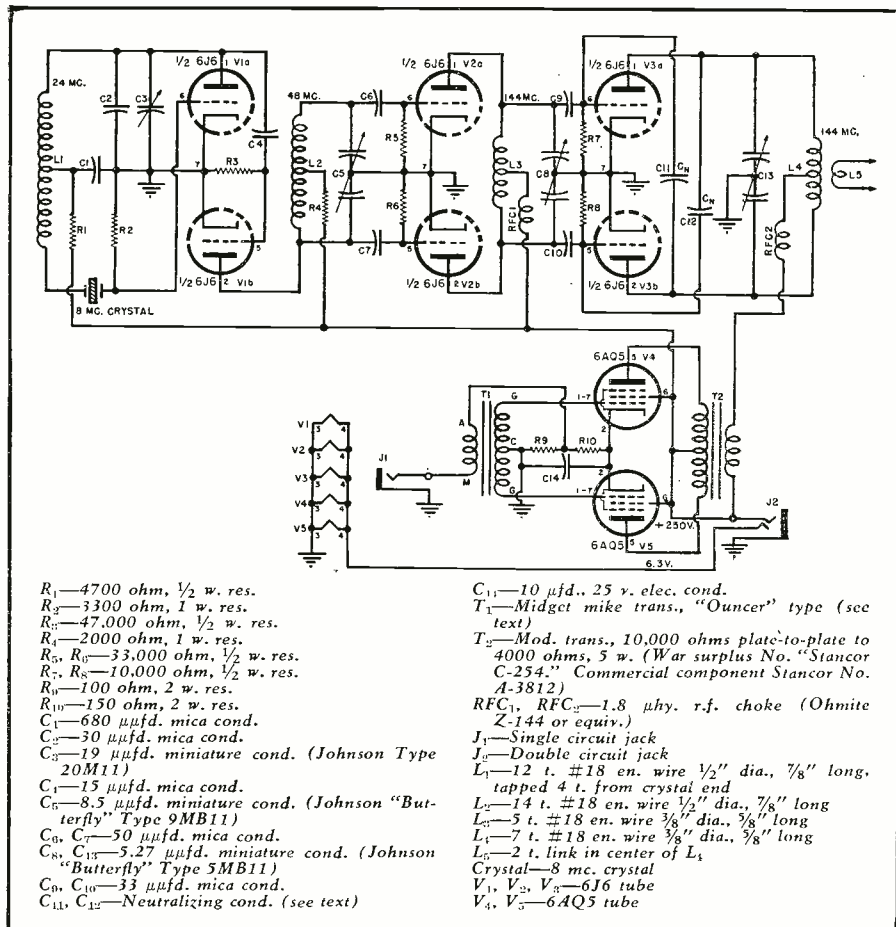 1/2 6J6 1 V1a
1/2 6J6 1 V2a
1/2 6J6 1 V3a
24 MC.
C2
C3
6
C4
48 MC.
C6
6
R5
144 MC.
C9
6
R7
C11
CN
144 MC.
L1
C1
7
R3
L2
R4
C5
7
L3
C8
7
C13
L4
L5
R1
R2
R6
RFC1
R8
CN
C12
RFC2
5
C7
5
C10
5
1/2 6J6 2 V1b
1/2 6J6 2 V2b
1/2 6J6 2 V3b
8 MC. CRYSTAL
6AQ5 5 V4
T1
G
1-7
6
T2
A
2
V1
3 4
V2
3 4
J1
C
R9
R10
V3
3 4
M
C14
2
V4
3 4
G
1-7
6
J2
V5
3 4
+250V.
6AQ5 5 V5
6.3V.
R1—4700 ohm, 1/2 w. res.
R2—3300 ohm, 1 w. res.
R3—47,000 ohm, 1/2 w. res.
R4—2000 ohm, 1 w. res.
R5, R6—33,000 ohm, 1/2 w. res.
R7, R8—10,000 ohm, 1/2 w. res.
R9—100 ohm, 2 w. res.
R10—150 ohm, 2 w. res.
C1—680 μμfd. mica cond.
C2—30 μμfd. mica cond.
C3—19 μμfd. miniature cond. (Johnson Type
20M11)
C4—15 μμfd. mica cond.
C5—8.5 μμfd. miniature cond. (Johnson "But-
terfly" Type 9MB11)
C6, C7—50 μμfd. mica cond.
C8, C13—5.27 μμfd. miniature cond. (Johnson
"Butterfly" Type 5MB11)
C9, C10—33 μμfd. mica cond.
C11, C12—Neutralizing cond. (see text)
C14—10 μfd., 25 v. elec. cond.
T1—Midget mike trans., "Ouncer" type (see
text)
T2—Mod. trans., 10,000 ohms plate-to-plate to
4000 ohms, 5 w. (War surplus No. "Stancor
C-254." Commercial component Stancor No.
A-3812)
RFC1, RFC2—1.8 μhy. r.f. choke (Ohmite
Z-144 or equiv.)
J1—Single circuit jack
J2—Double circuit jack
L1—12 t. #18 en. wire 1/2" dia., 7/8" long,
tapped 4 t. from crystal end
L2—14 t. #18 en. wire 1/2" dia., 7/8" long
L3—5 t. #18 en. wire 3/8" dia., 5/8" long
L4—7 t. #18 en. wire 3/8" dia., 5/8" long
L5—2 t. link in center of L4
Crystal—8 mc. crystal
V1, V2, V3—6J6 tube
V4, V5—6AQ5 tube